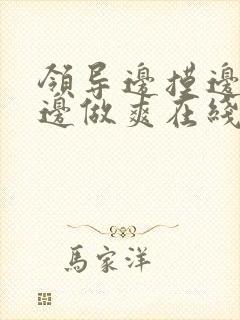 领导邊摸邊
邊做爽在綫
馬家洋